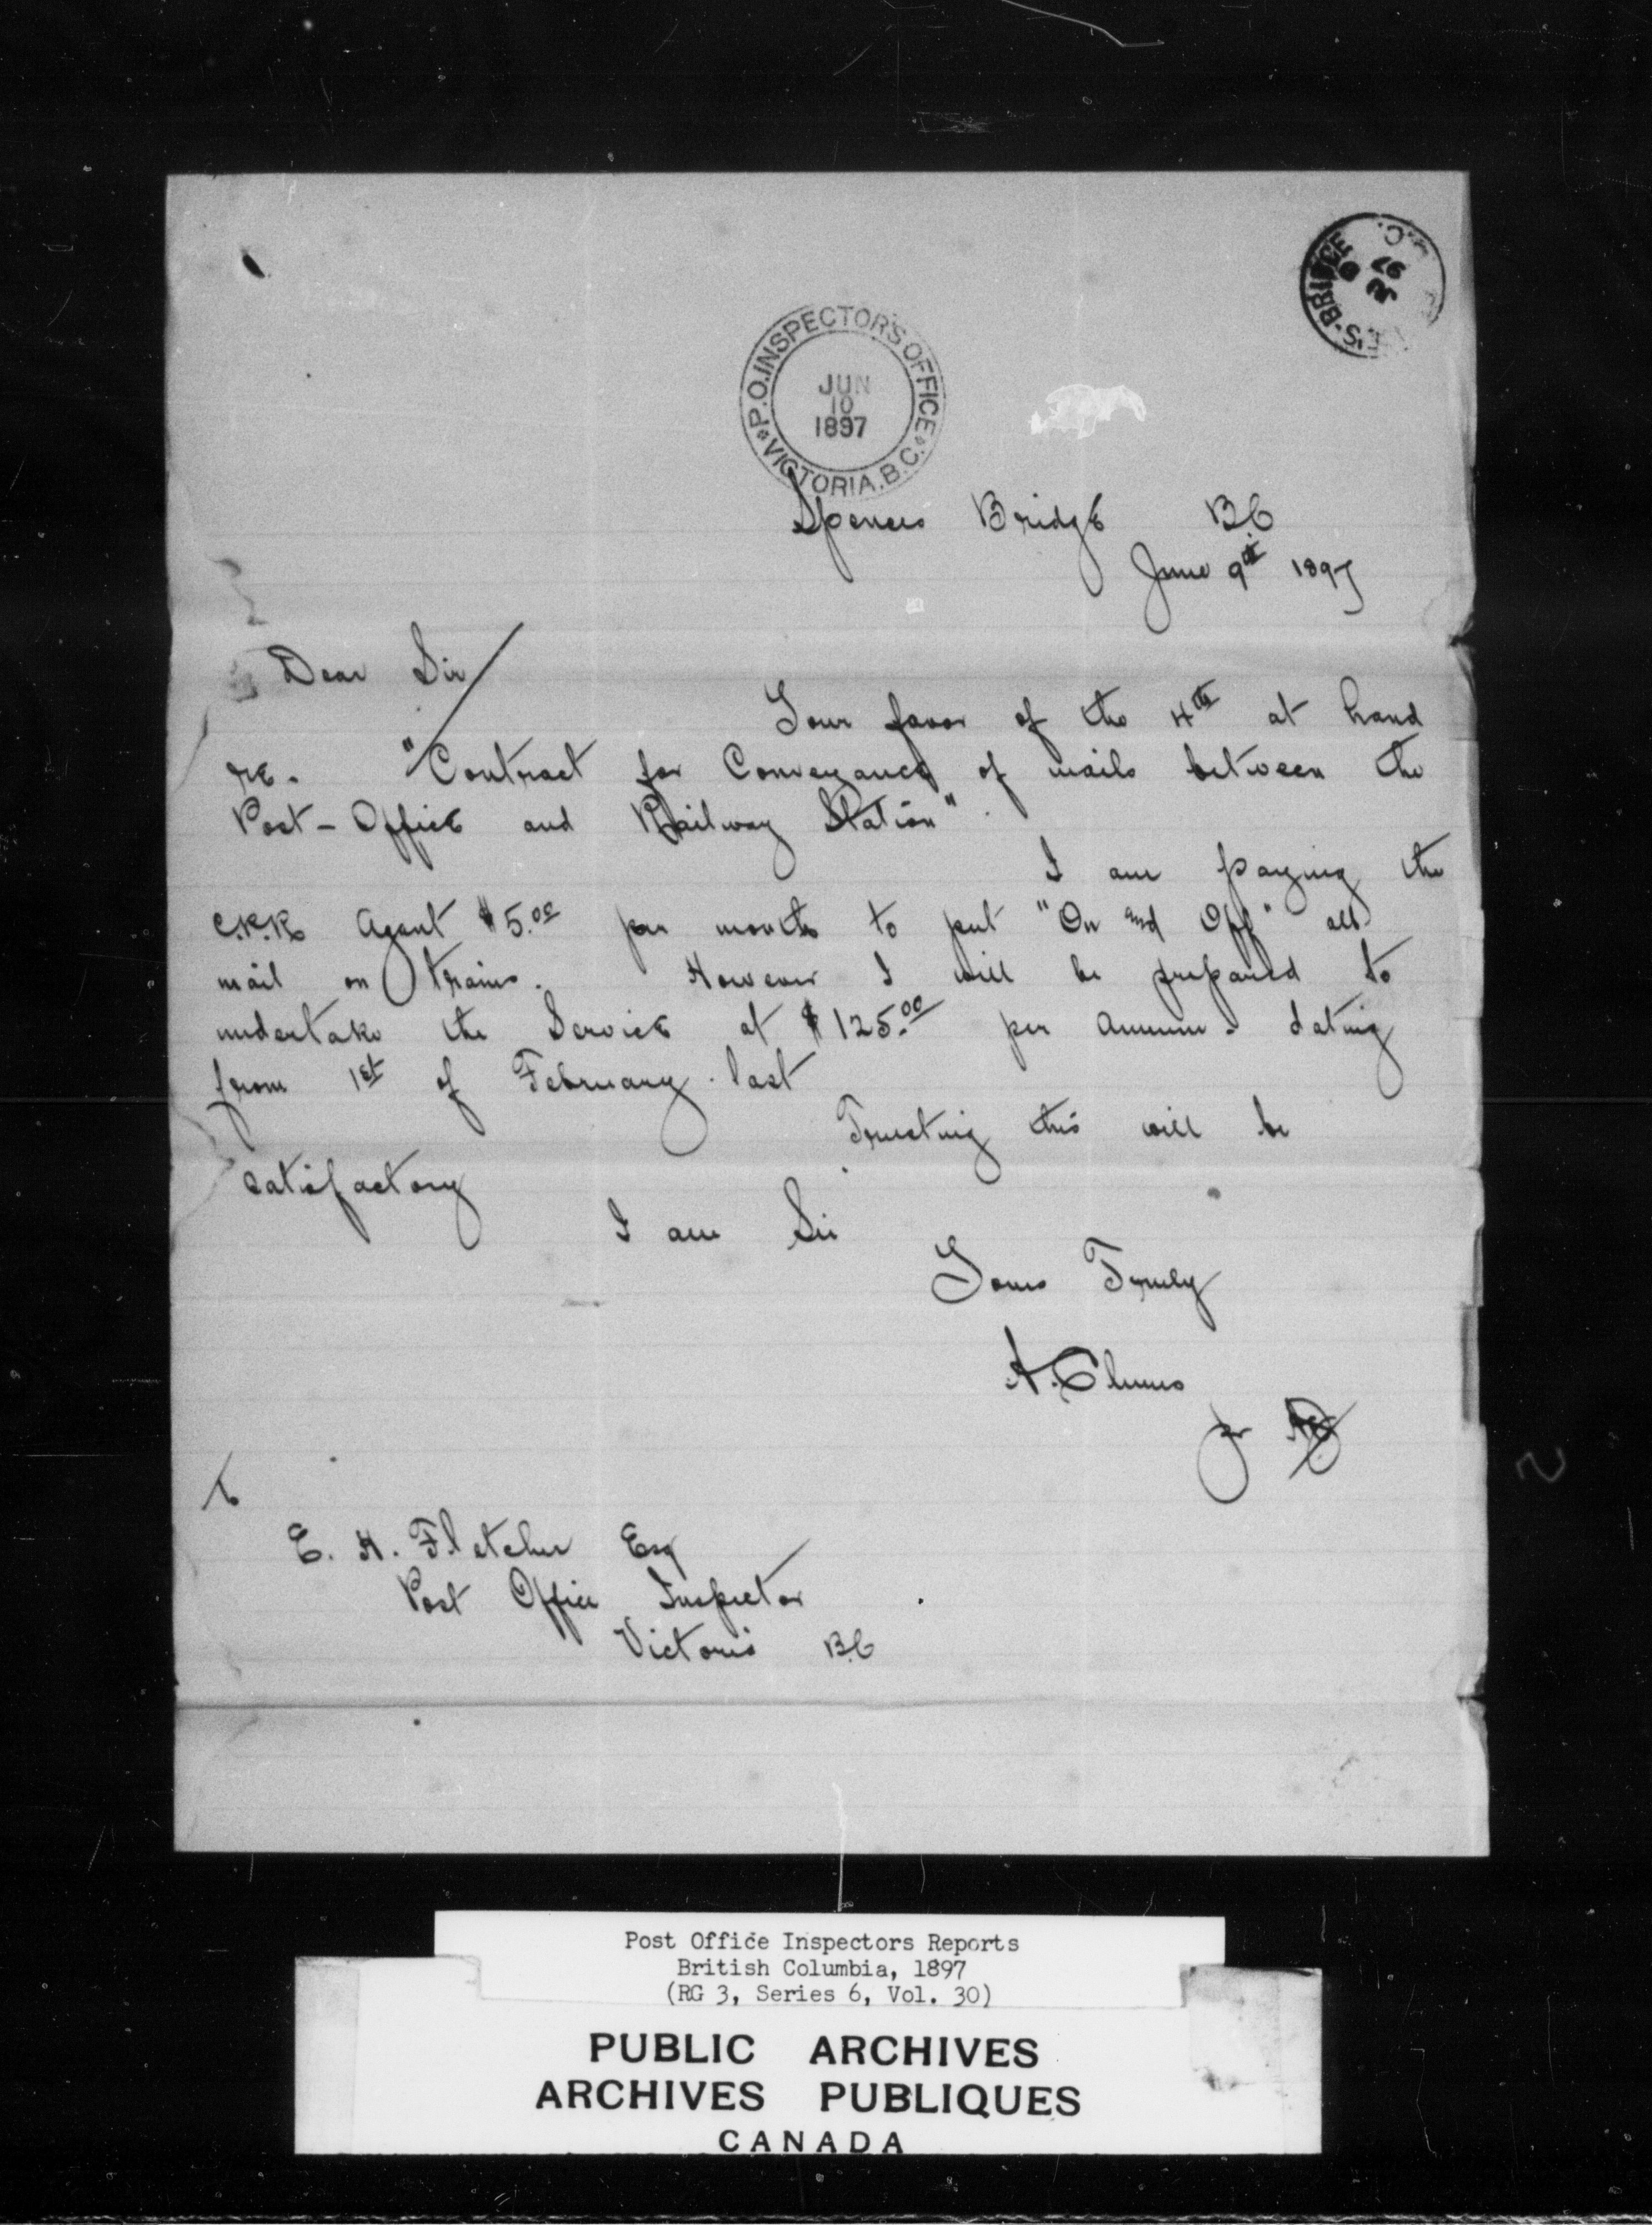 S-BRIDGE B.C.
JU 9
97
P.O. INSPECTOR'S OFFICE
JUN
10
1897
VICTORIA, B.C.
Spences Bridge B.C
June 9th 1897
Dear Sir
Your favor of the 4th at hand
re. "Contract for Conveyance of mails between the
Post-Office and Railway Station".
I am paying the
C.P.R. Agent $5.00 per month to put "On and Off" all
mail on trains. However I will be prepared to
undertake the Service at $125.00 per Annum. dating
from 1st of February last
Trusting this will be
satisfactory
I am Sir
Yours Truly
A. Clemes
To
E. H. Fletcher Esq
Post Office Inspector
Victoria B.C
Post Office Inspectors Reports
British Columbia, 1897
(RG 3, Series 6, Vol. 30)
PUBLIC ARCHIVES
ARCHIVES PUBLIQUES
CANADA